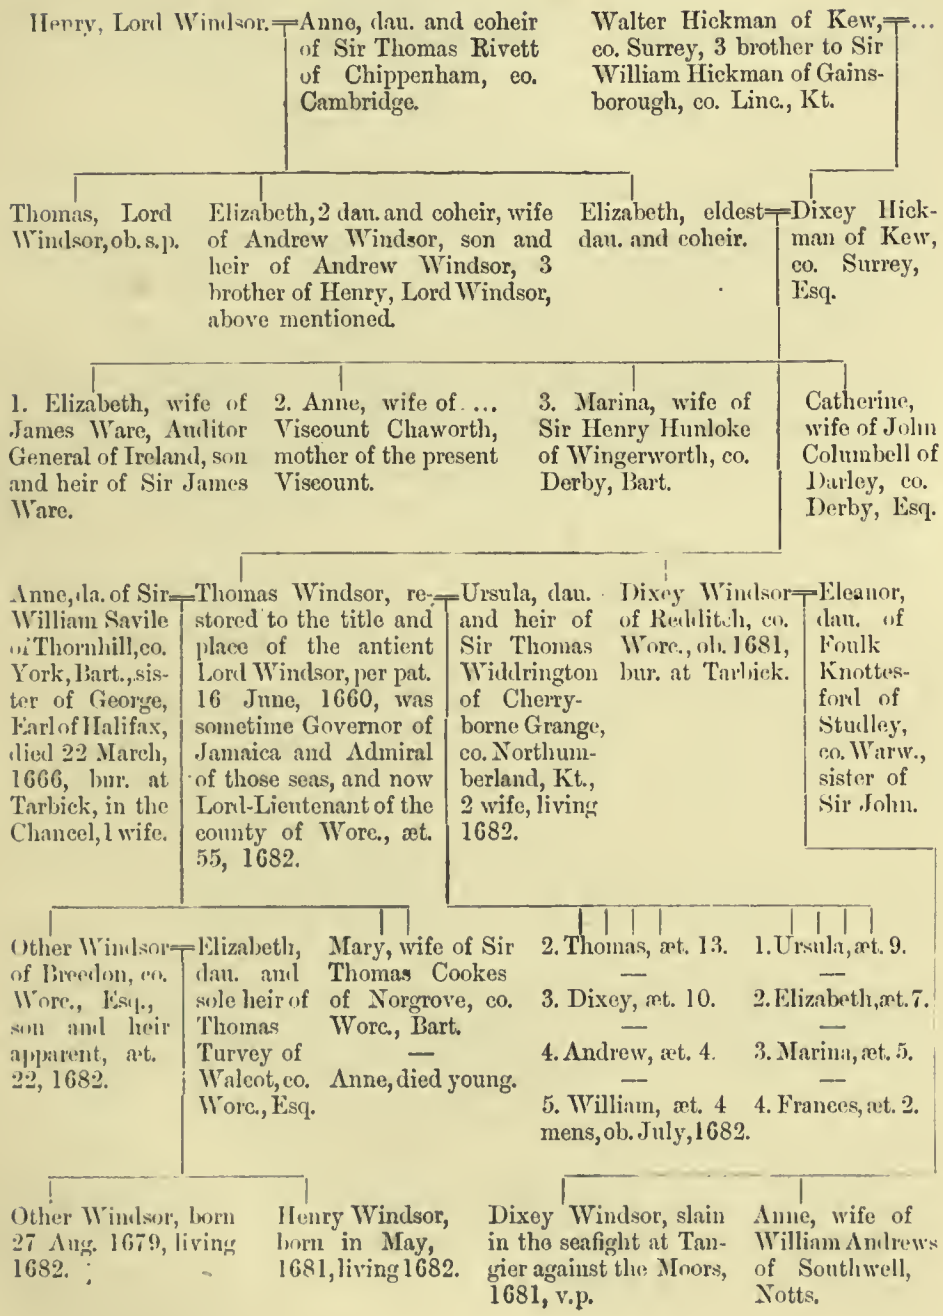 Henry, Lord Windsor.
Anne, dau. and coheir
of Sir Thomas Rivett
of Chippenham, co.
Cambridge.
Walter Hickman of Kew, ...
co. Surrey, 3 brother to Sir
William Hickman of Gains-
borough, co. Linc., Kt.
Thomas, Lord
Windsor, ob. s.p.
Elizabeth, 2 dau. and coheir, wife
of Andrew Windsor, son and
heir of Andrew Windsor, 3
brother of Henry, Lord Windsor,
above mentioned.
Elizabeth, eldest
dau. and coheir.
Dixey Hick-
man of Kew,
co. Surrey,
Esq.
1. Elizabeth, wife of
James Ware, Auditor
General of Ireland, son
and heir of Sir James
Ware.
2. Anne, wife of ...
Viscount Chaworth,
mother of the present
Viscount.
3. Marina, wife of
Sir Henry Hunloke
of Wingerworth, co.
Derby, Bart.
Catherine,
wife of John
Columbell of
Darley, co.
Derby, Esq.
Anne, da. of Sir
William Savile
of Thornhill, co.
York, Bart., sis-
ter of George,
Earl of Halifax,
died 22 March,
1666, bur. at
Tarbick, in the
Chancel, 1 wife.
Thomas Windsor, re-
stored to the title and
place of the antient
Lord Windsor, per pat.
16 June, 1660, was
sometime Governor of
Jamaica and Admiral
of those seas, and now
Lord-Lieutenant of the
county of Worc., æt.
55, 1682.
Ursula, dau.
and heir of
Sir Thomas
Widdrington
of Cherry-
borne Grange,
co. Northum-
berland, Kt.,
2 wife, living
1682.
Dixey Windsor
of Redditch, co.
Worc., ob. 1681,
bur. at Tarbick.
Eleanor,
dau. of
Foulk
Knottes-
ford of
Studley,
co. Warw.,
sister of
Sir John.
Other Windsor
of Breedon, co.
Worc., Esq.,
son and heir
apparent, æt.
22, 1682.
Elizabeth,
dau. and
sole heir of
Thomas
Turvey of
Walcot, co.
Worc., Esq.
Mary, wife of Sir
Thomas Cookes
of Norgrove, co.
Worc., Bart.
—
Anne, died young.
2. Thomas, æt. 13.
—
3. Dixey, æt. 10.
—
4. Andrew, æt. 4.
—
5. William, æt. 4
mens, ob. July, 1682.
1. Ursula, æt. 9.
—
2. Elizabeth, æt. 7.
—
3. Marina, æt. 5.
—
4. Frances, æt. 2.
Other Windsor, born
27 Aug. 1679, living
1682.
Henry Windsor,
born in May,
1681, living 1682.
Dixey Windsor, slain
in the seafight at Tan-
gier against the Moors,
1681, v.p.
Anne, wife of
William Andrews
of Southwell,
Notts.